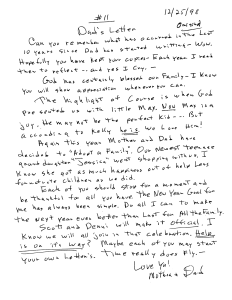 #11
12/25/98
Dad's Letter
Can you remember what has occurred in the last
10 years since Dad has started writing - Wow!
Hopefully you have kept your copies. Each year I read
them to reflect - and yes I cry. -
God has certainly blessed our Family - I know
you will show appreciation whenever you can.
The highlight of course is when God
presented us with little May. Now May is a
joy. He may not be the perfect kid --- But
according to Kelly he is we love him!
Again this year Mother and Dad have
decided to "Adopt a Family". Our newest teenage
grand daughter "Jessica" went shopping with us, I
know she got as much happiness out of help less
fortunate children as we did.
Each of you should stop for a moment and
be thankful for all you have. The New Year Goal for
me has always been simple. Do all I can to make
the next year even better than last for All the Family.
Scott and Denni will make it official. I
know we will all join in that celebration.
is on its way? Maybe each of you may start
your own Letter's. Time really does fly. -
Love Ya!
Mother & Dad